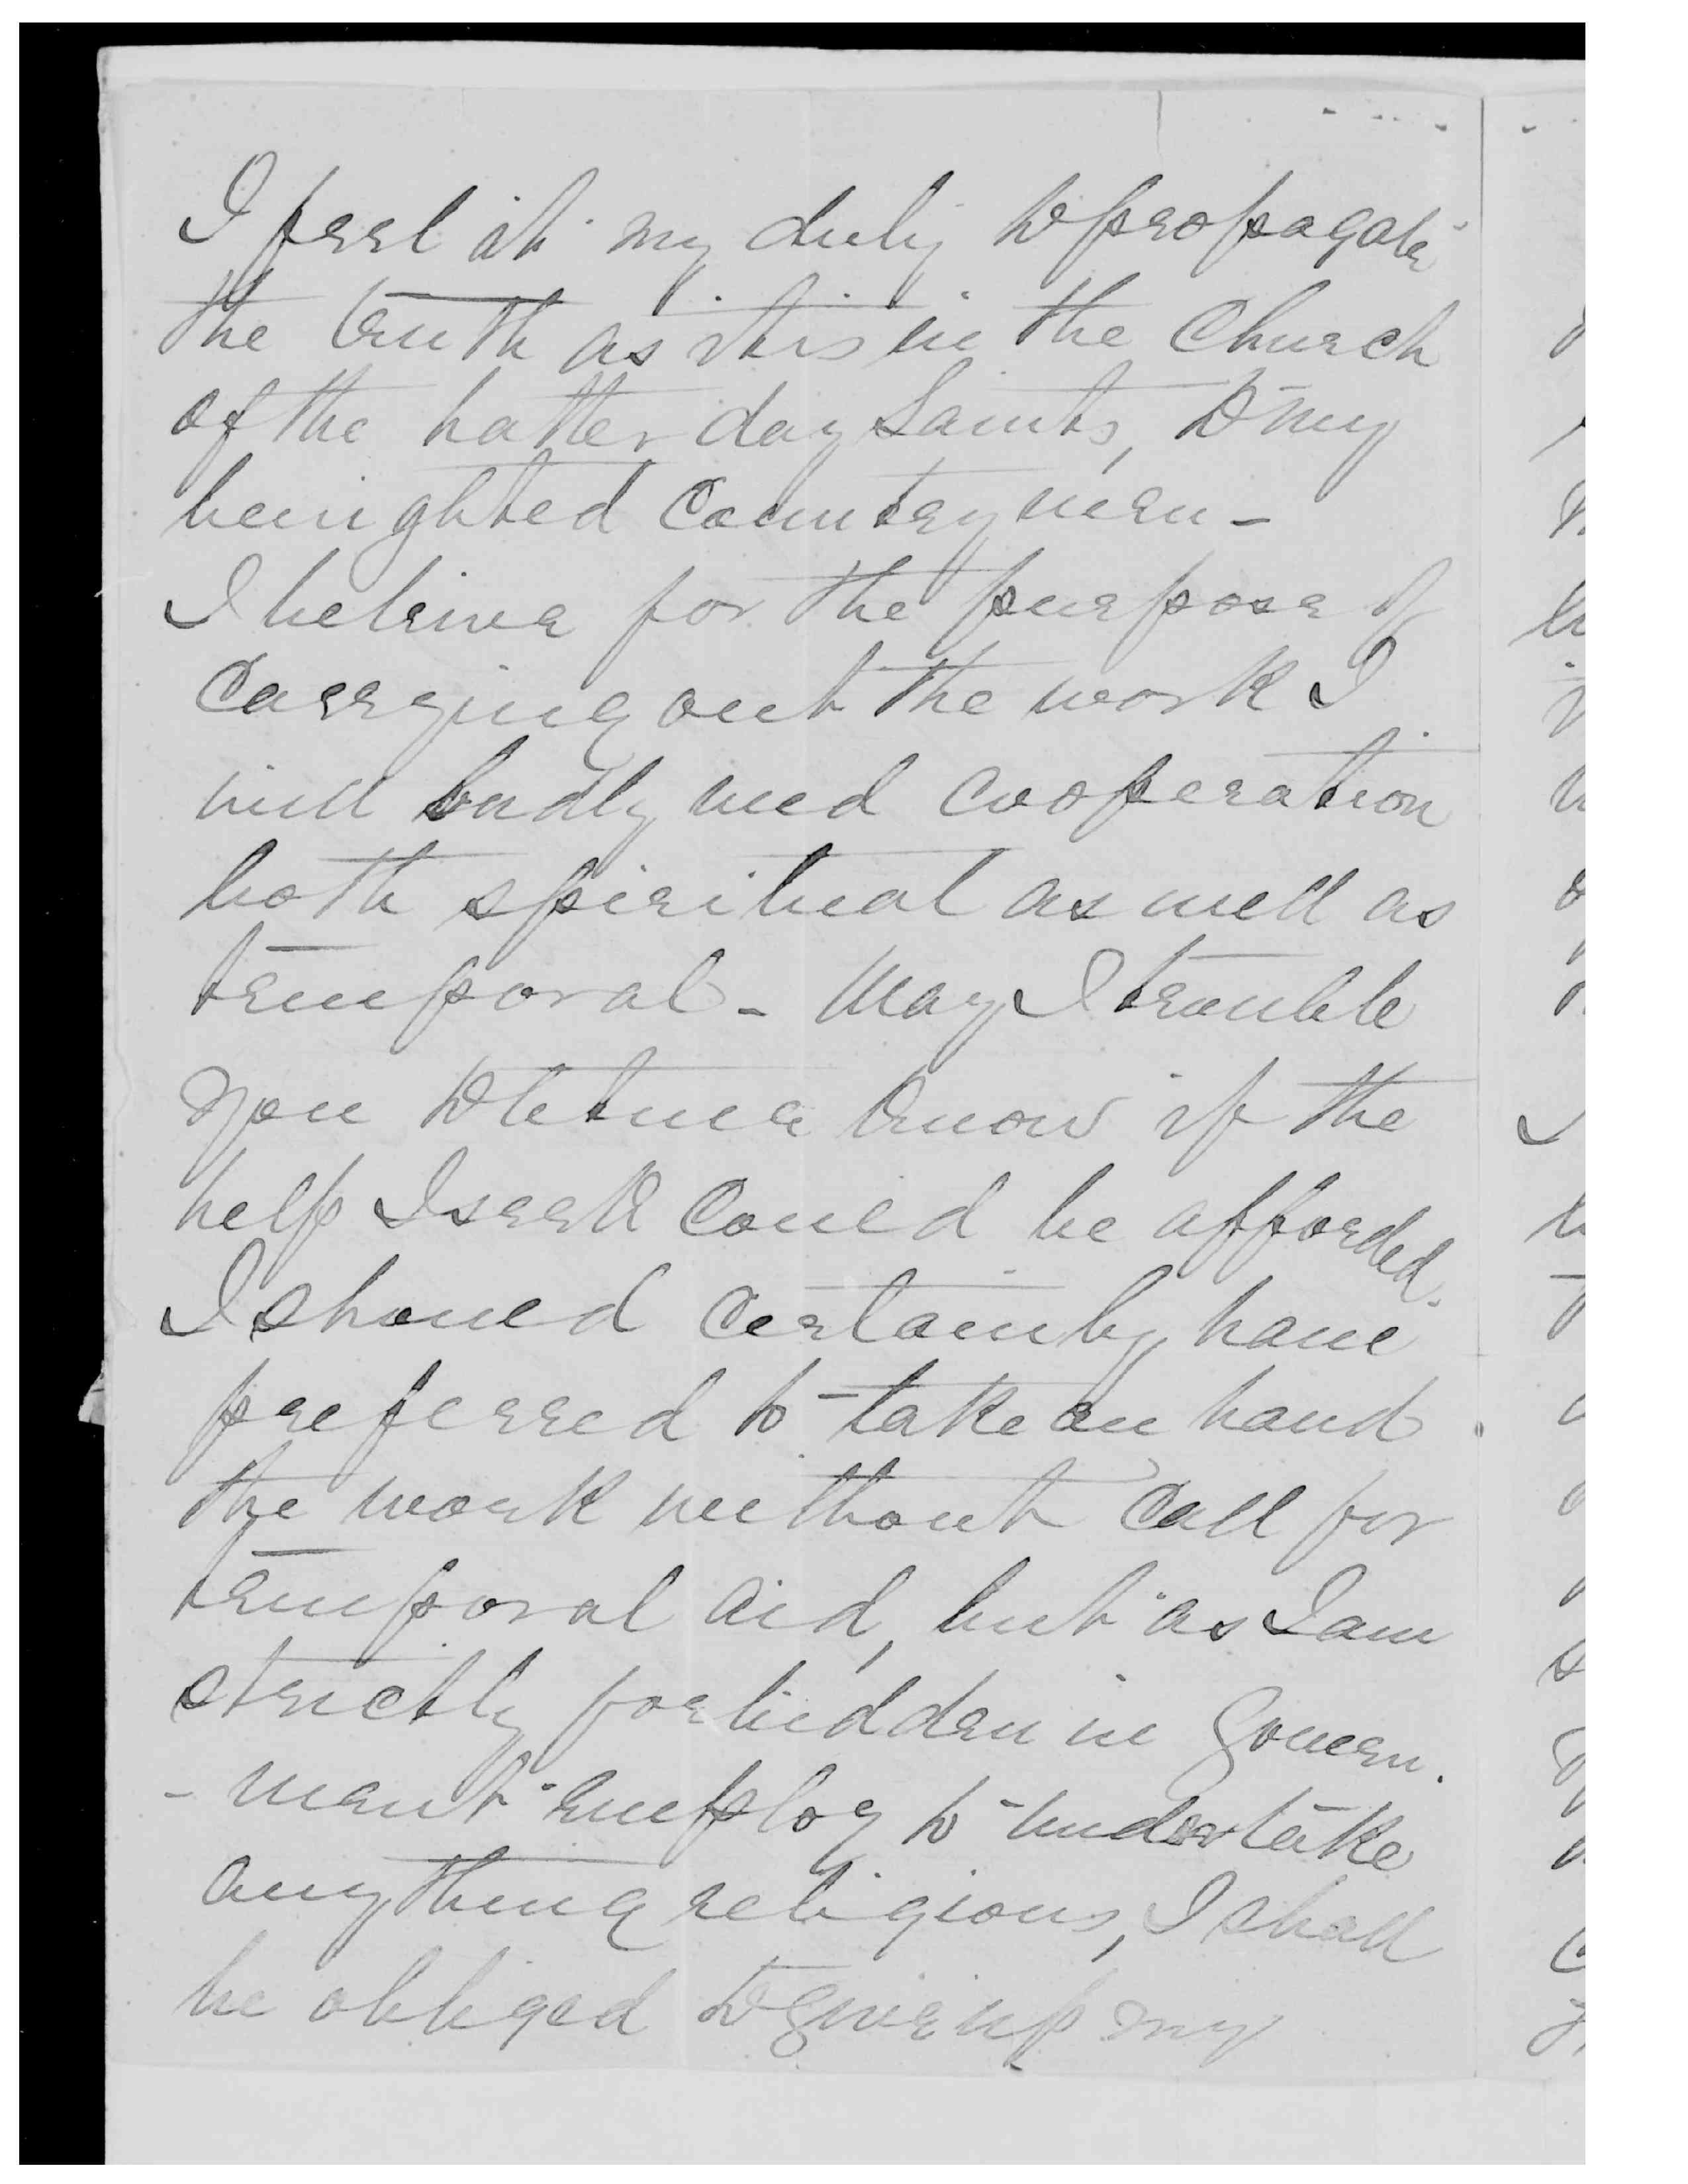 I feel it my duty to propagate
the truth as it is in the Church
of the Latter day Saints, to my
benighted Countrymen -
I believe for the purpose of
Carrying out the work I
will badly need cooperation
both spiritual as well as
temporal - May I trouble
you to let me know if the
help I seek Could be afforded.
I should Certainly have
preferred to take on hand
the work without Call for
temporal aid, but as I am
strictly forbidden in Govern.
- ment employ to undertake
anything religious, I shall
be obliged to give up my